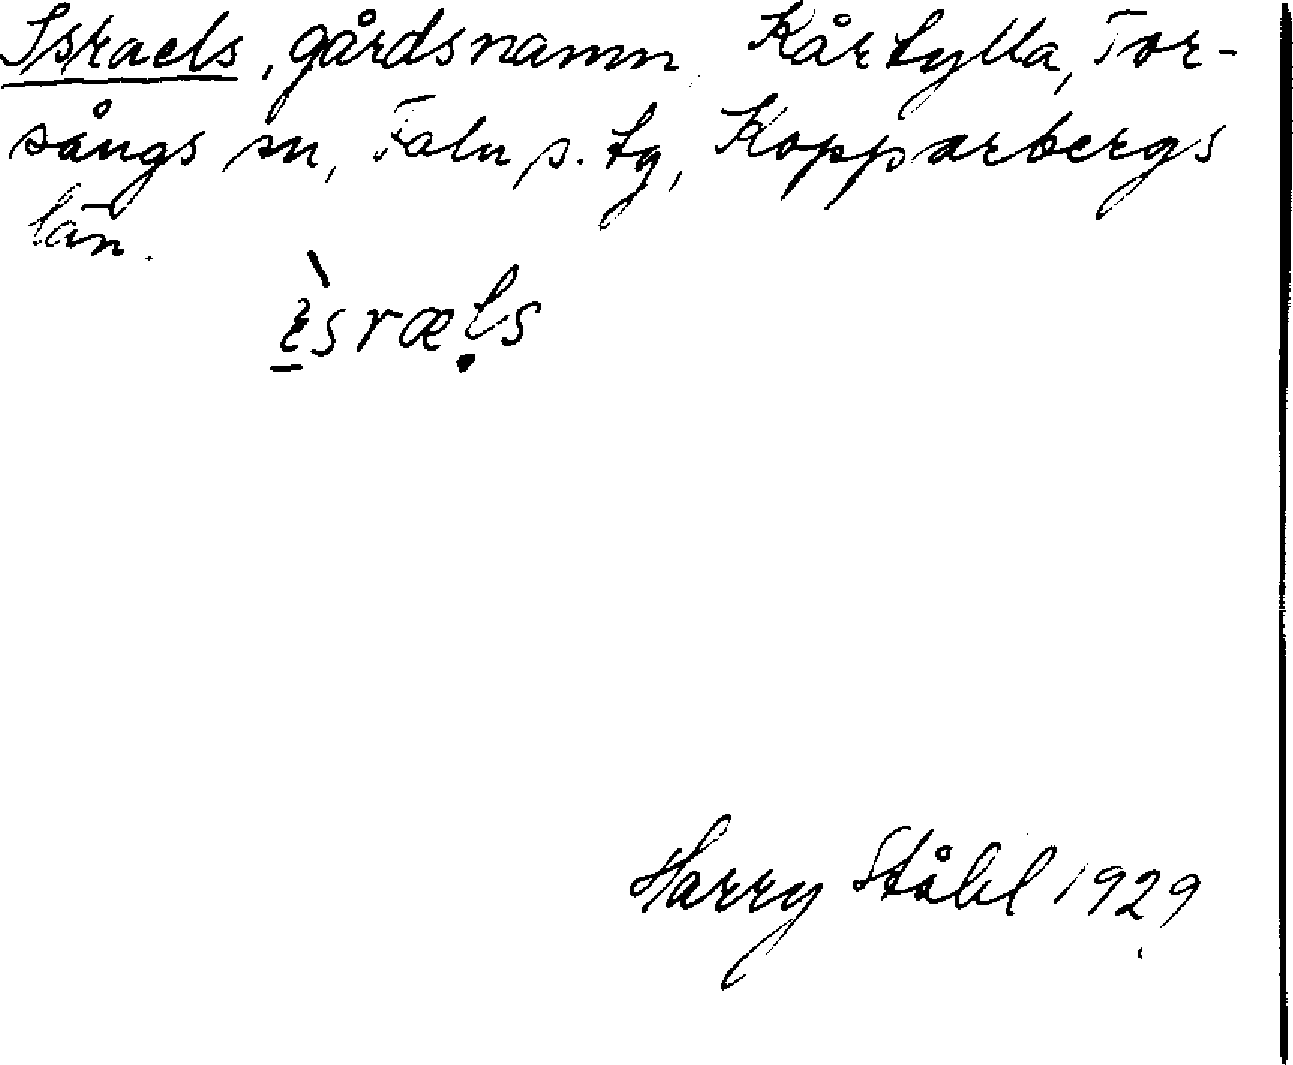 Israels, gårdsnamn, Kårtylla, Tor-
sångs sn, Falu s. tg, Kopparbergs
län.
ìsræls
Harry Ståhl 1929